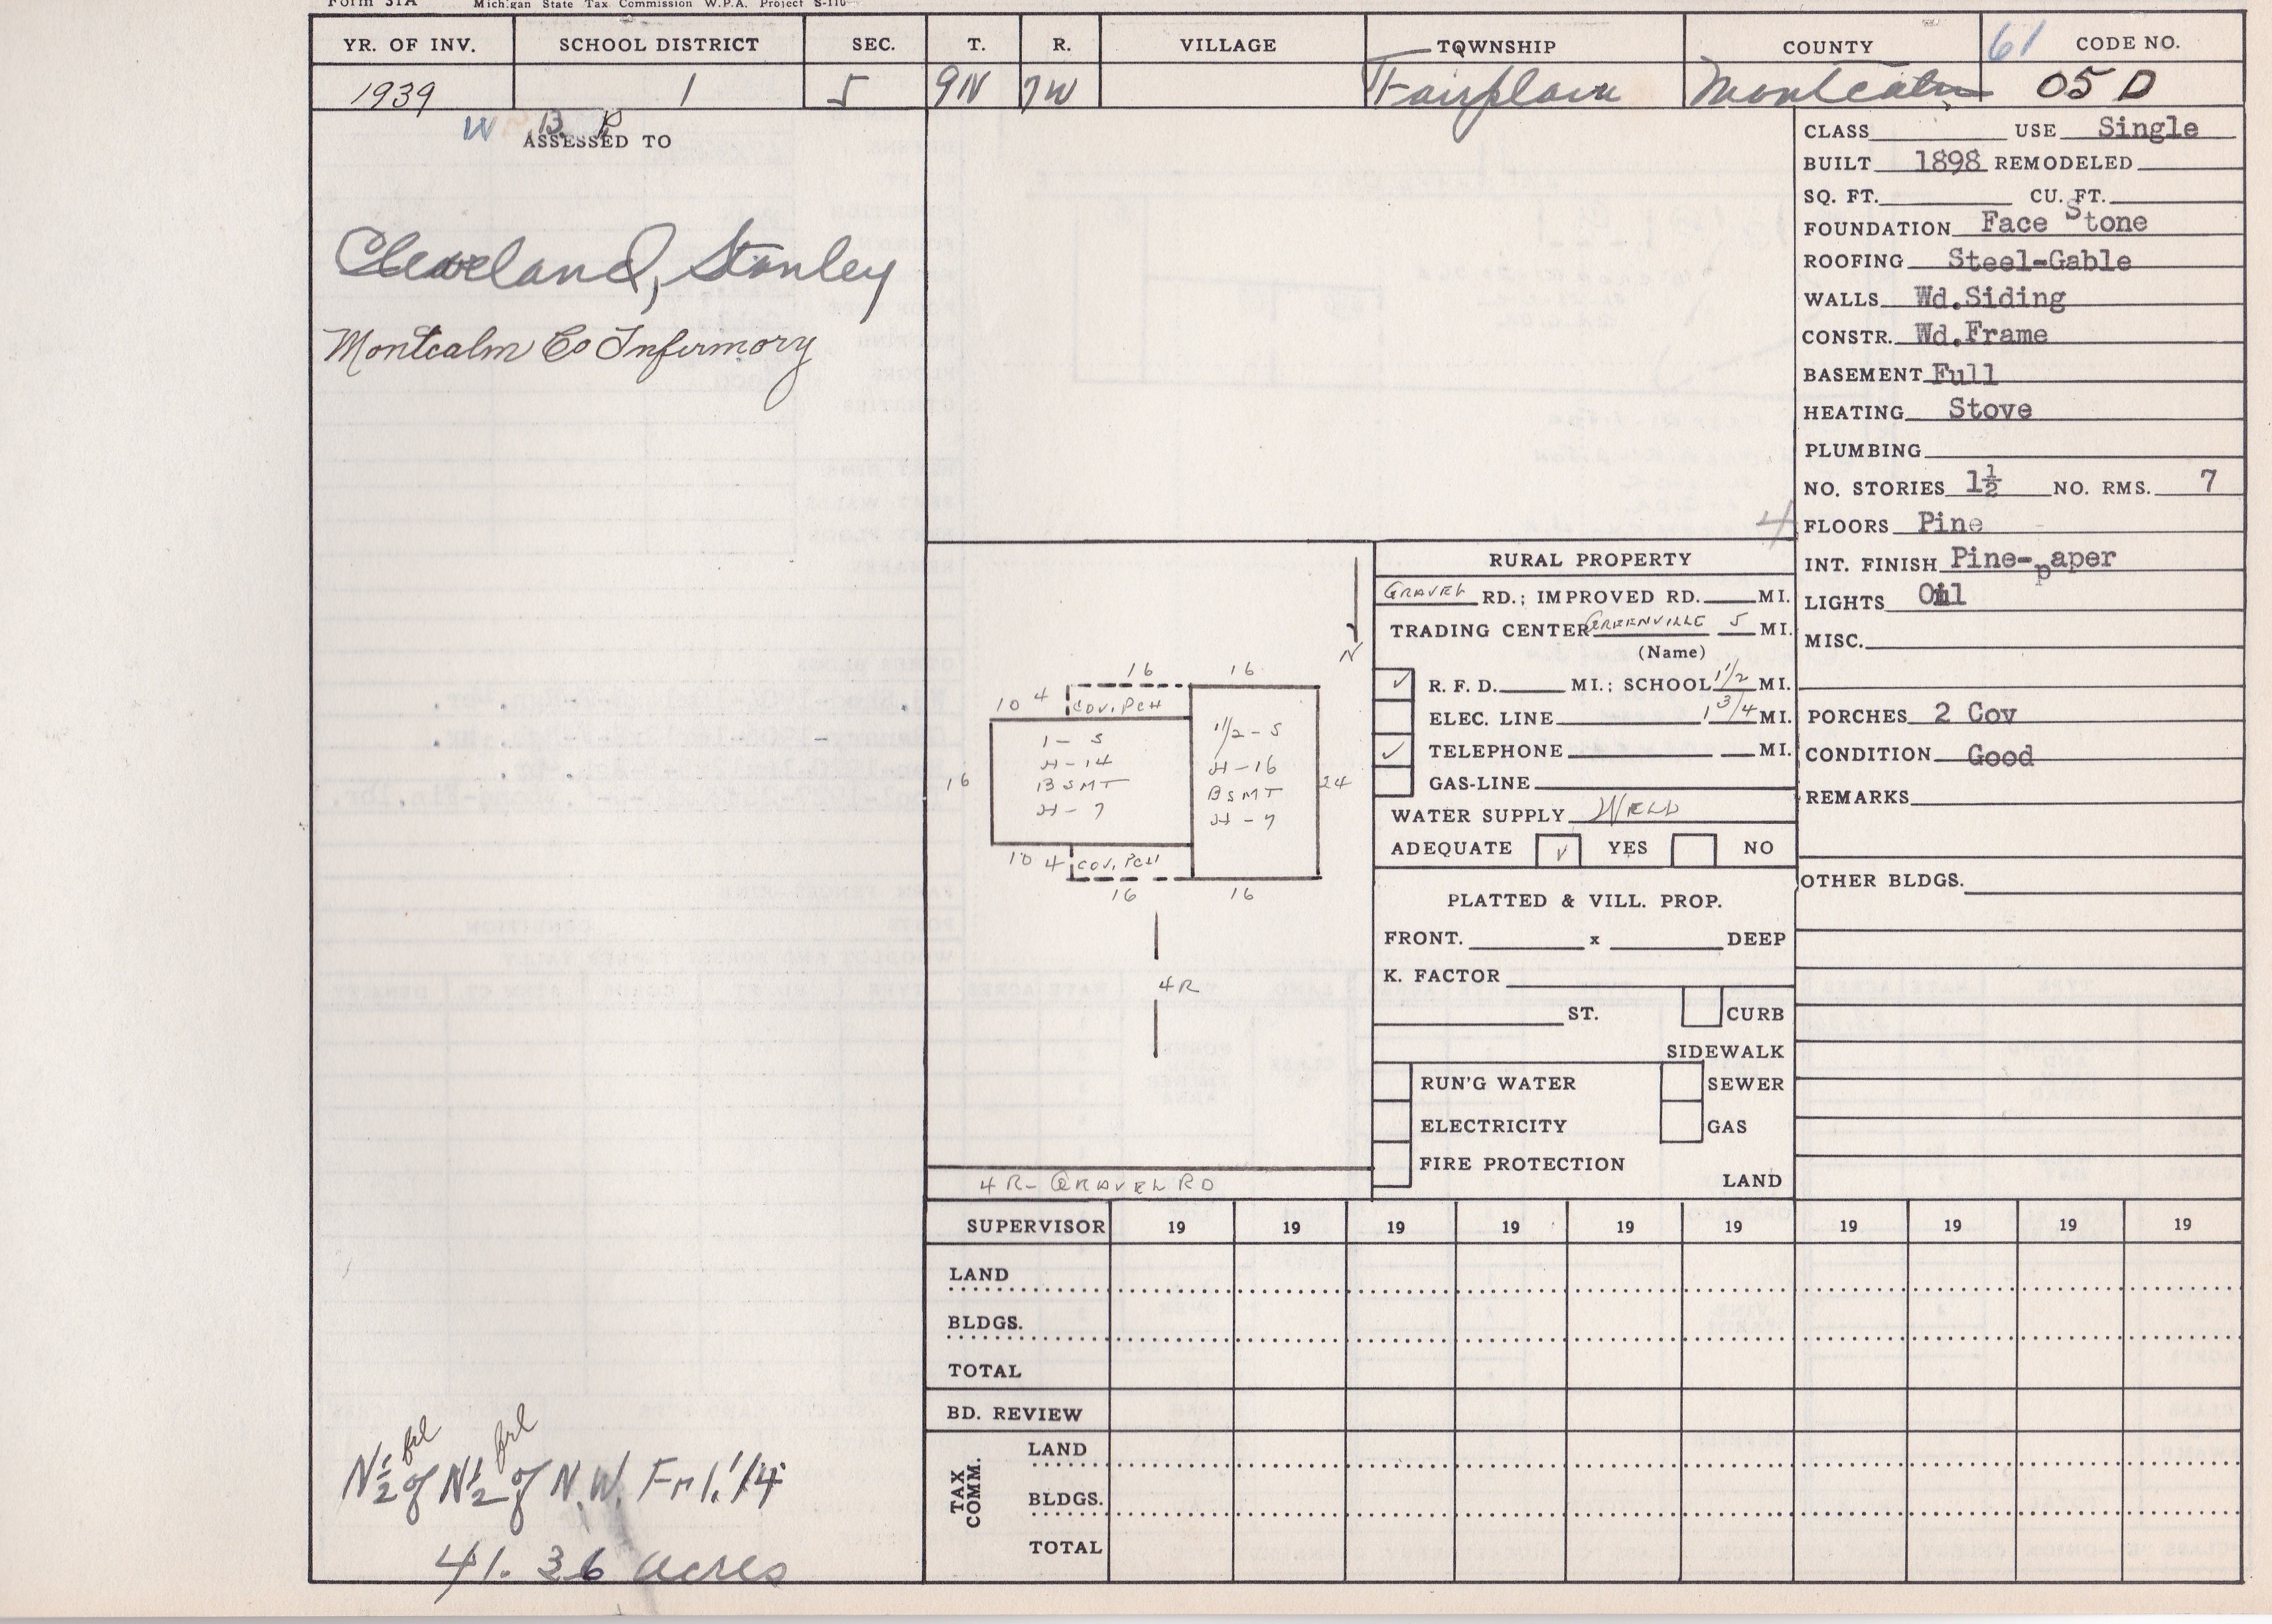 Form 31A Michigan State Tax Commission W.P.A. Project S-110
YR. OF INV. SCHOOL DISTRICT SEC. T. R. VILLAGE TOWNSHIP COUNTY 61 CODE NO.
1939 1 5 9N 7W Fairplain Montcalm 05 D
W B. R
ASSESSED TO
Cleveland, Stanley
Montcalm Co Infirmory
N½ frl of N½ frl of N.W. Frl. 1/4
41.36 acres
CLASS USE Single
BUILT 1898 REMODELED
SQ. FT. CU. FT.
FOUNDATION Face Stone
ROOFING Steel-Gable
WALLS Wd.Siding
CONSTR. Wd.Frame
BASEMENT Full
HEATING Stove
PLUMBING
NO. STORIES 1½ NO. RMS. 7
FLOORS Pine
INT. FINISH Pine-paper
LIGHTS Oil
MISC.
PORCHES 2 Cov
CONDITION Good
REMARKS
OTHER BLDGS.
4
N
16 16
10 4 COV. PCH
1 - S
H - 14
BSMT
H - 7
16
1 1/2 - S
H - 16
BSMT
H - 7
24
10 4 COV. PCH
16 16
4R
4 R- GRAVEL RD
RURAL PROPERTY
GRAVEL RD.; IMPROVED RD. MI.
TRADING CENTER GREENVILLE 5 MI.
(Name)
✓ R. F. D. MI.; SCHOOL 1 1/2 MI.
ELEC. LINE 1 3/4 MI.
✓ TELEPHONE MI.
GAS-LINE
WATER SUPPLY WELL
ADEQUATE ✓ YES NO
PLATTED & VILL. PROP.
FRONT. x DEEP
K. FACTOR
ST. CURB
SIDEWALK
RUN'G WATER SEWER
ELECTRICITY GAS
FIRE PROTECTION
LAND
SUPERVISOR 19 19 19 19 19 19 19 19 19 19
LAND
BLDGS.
TOTAL
BD. REVIEW
TAX COMM.
LAND
BLDGS.
TOTAL